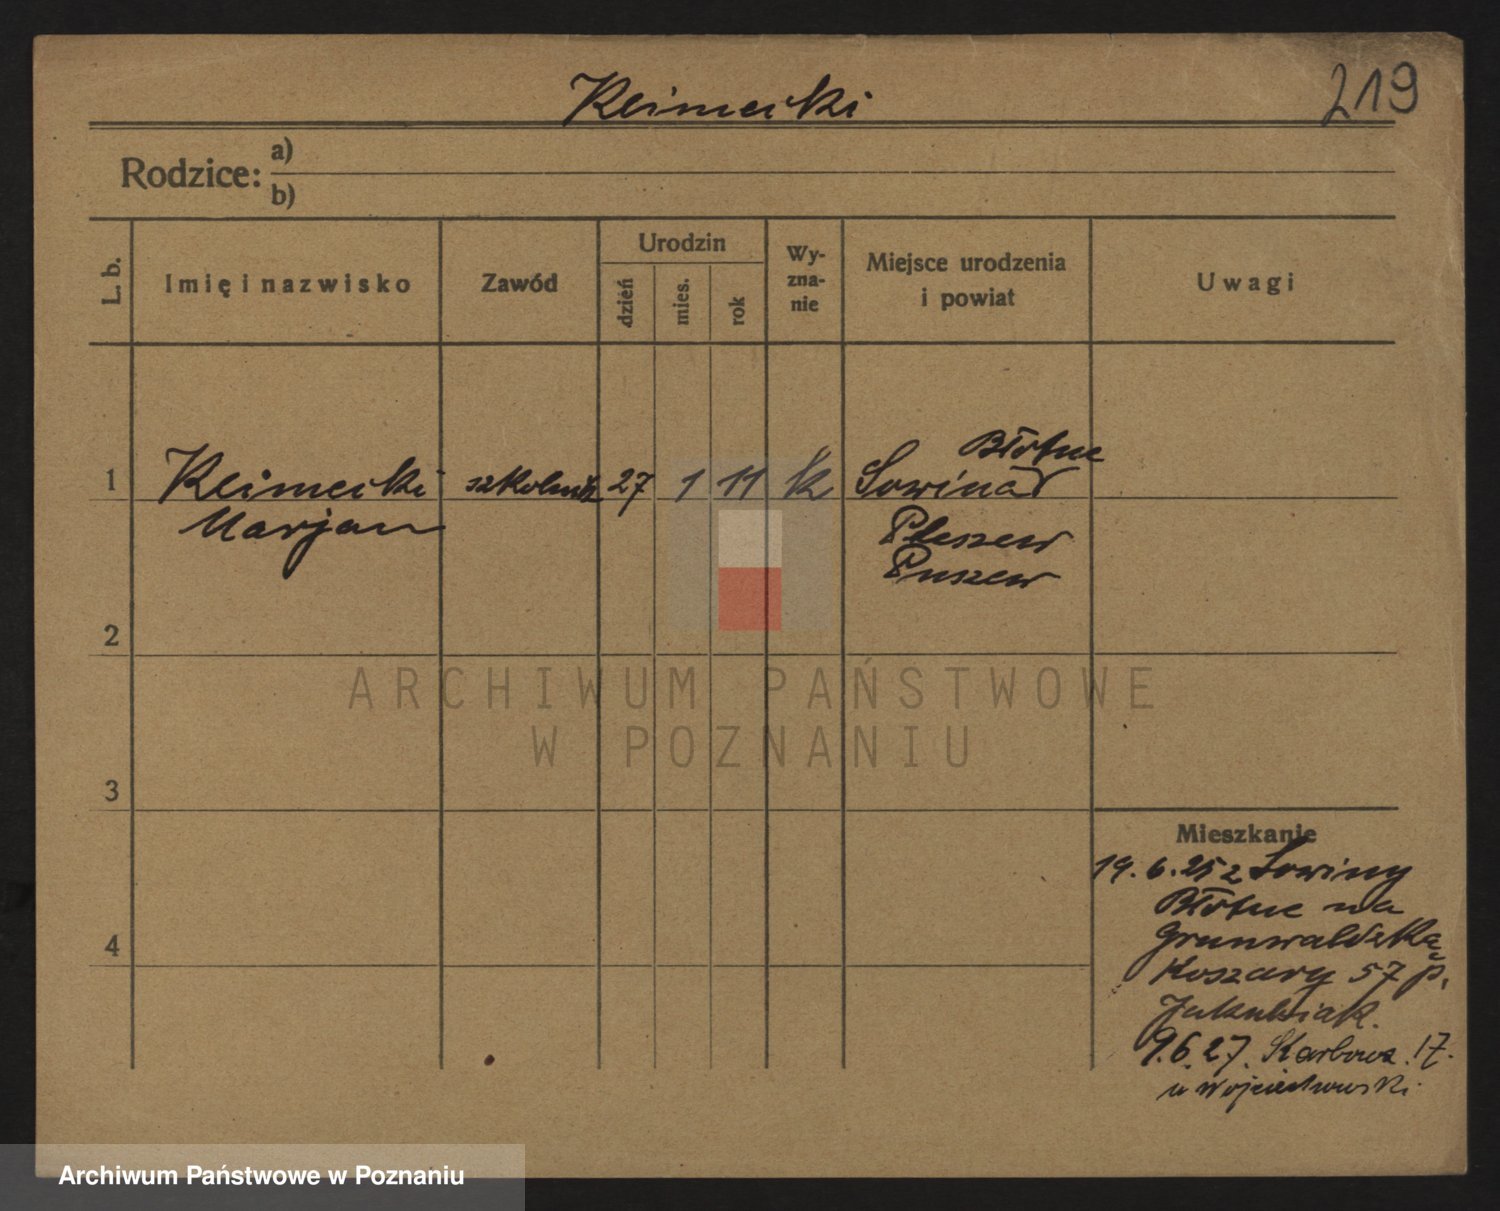 Klimecki
219
Rodzice: a)
b)
L. b.
Imię i nazwisko
Zawód
Urodzin
dzień
mies.
rok
Wy-
zna-
nie
Miejsce urodzenia
i powiat
Uwagi
1
Klimecki
Marjan
27
1
11
k
Błotne
Sowina
Pleszew
2
3
4
Mieszkanie
19.6.25 z Sowiny
Błotne na
Grunwaldzką
Koszary 57 p.
Jakubiak.
9.6.27. Karbowa. 17.
u Wojciechowski.
ARCHIWUM PAŃSTWOWE
W POZNANIU
Archiwum Państwowe w Poznaniu